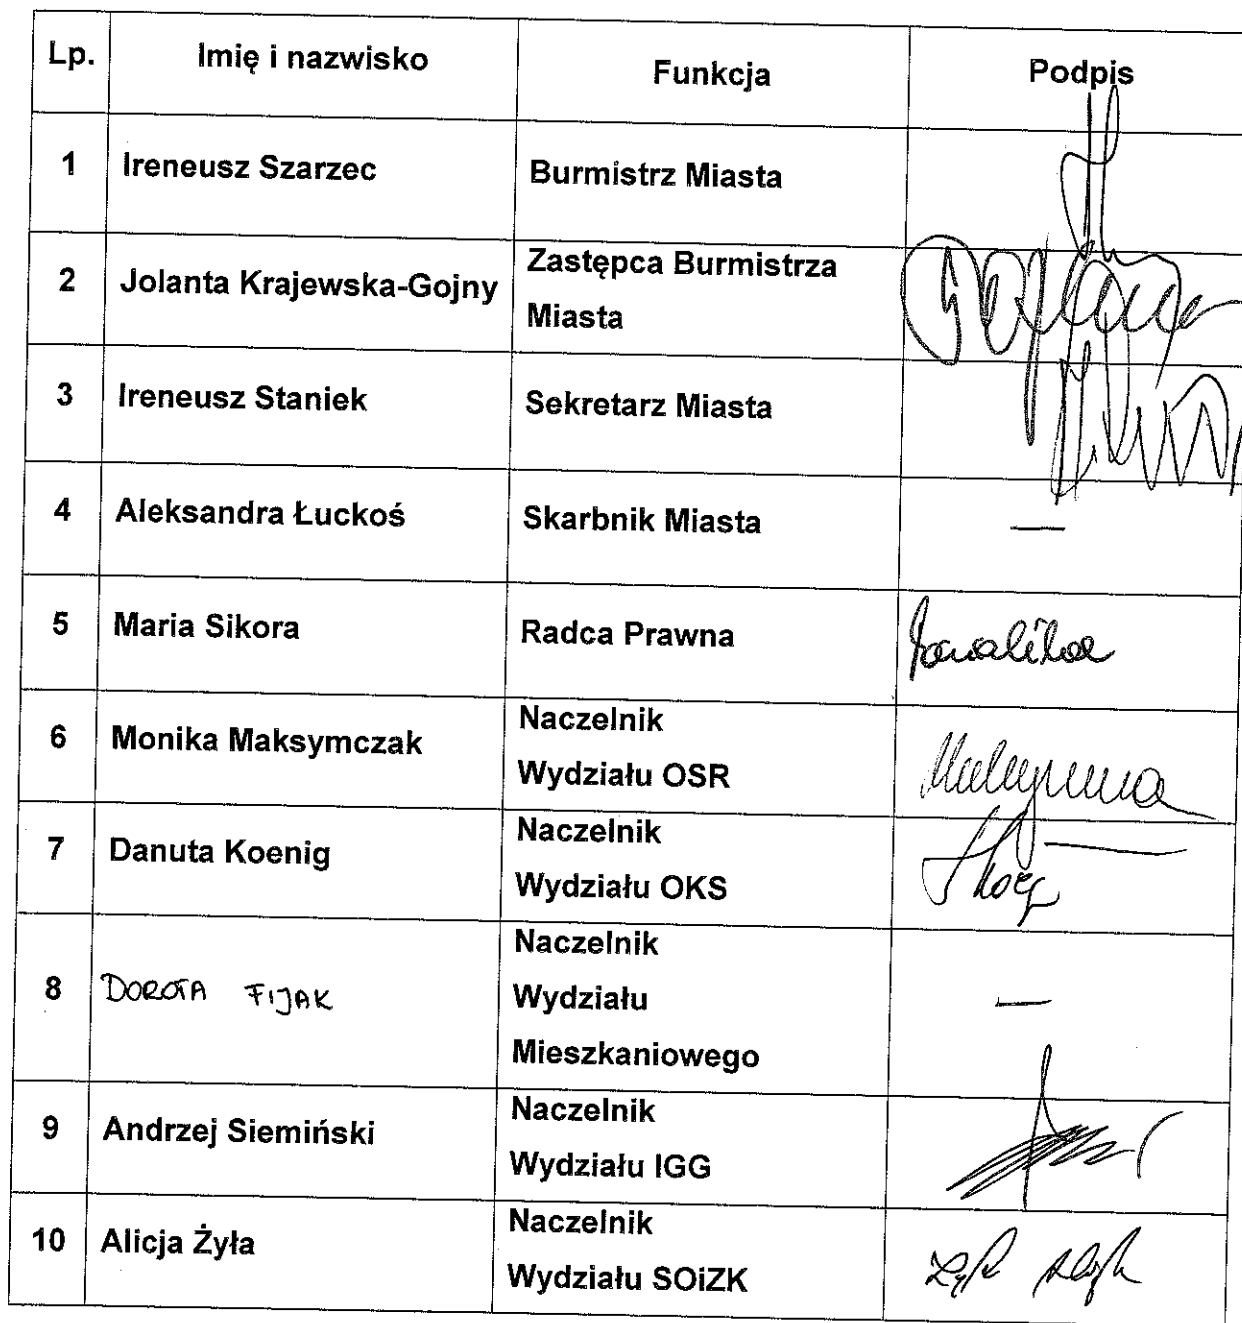 Lp. Imię i nazwisko Funkcja Podpis
1 Ireneusz Szarzec Burmistrz Miasta
2 Jolanta Krajewska-Gojny Zastępca Burmistrza
Miasta
3 Ireneusz Staniek Sekretarz Miasta
4 Aleksandra Łuckoś Skarbnik Miasta —
5 Maria Sikora Radca Prawna
6 Monika Maksymczak Naczelnik
Wydziału OSR
7 Danuta Koenig Naczelnik
Wydziału OKS
8 DOROTA FIJAK Naczelnik
Wydziału —
Mieszkaniowego
9 Andrzej Siemiński Naczelnik
Wydziału IGG
10 Alicja Żyła Naczelnik
Wydziału SOiZK